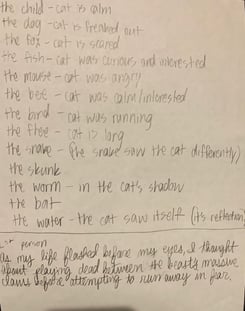 the child - cat is calm
the dog - cat is freaked out
the fox - cat is scared
the fish - cat was curious and interested
the mouse - cat was angry
the bee - cat was calm/interested
the bird - cat was running
the flee - cat is long
the snake - (the snake saw the cat differently)
the skunk
the worm - in the cat's shadow
the bat
the water - the cat saw itself (its reflection)
1st person
As my life flashed before my eyes, I thought
about playing dead between the beast's massive
claws before attempting to run away in fear.